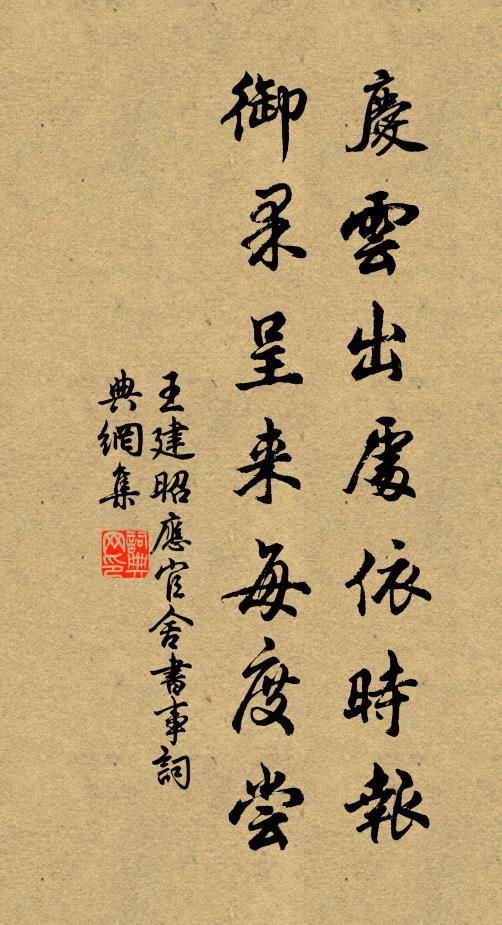 慶雲出處依時報
御果呈来每度嘗
王建昭應官舍書事詞
典網集
詞典網印